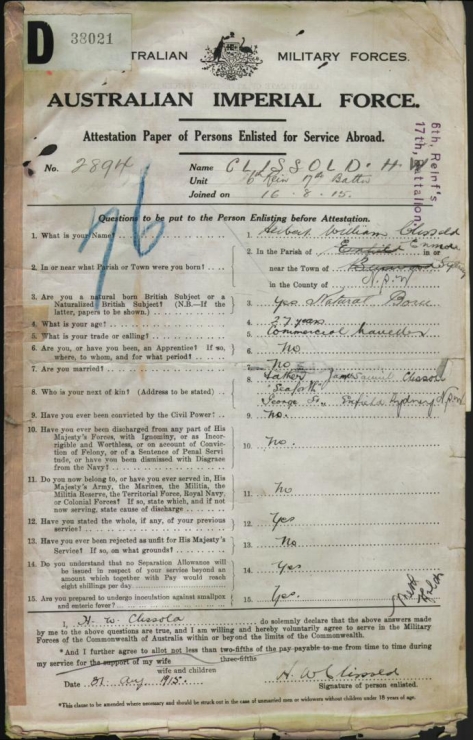 D 38021
AUSTRALIAN MILITARY FORCES.
AUSTRALIAN IMPERIAL FORCE.
Attestation Paper of Persons Enlisted for Service Abroad.
6th, Reinf's
17th, Battalion
No. 2894 Name CLISSOLD. H. W
Unit 6th Rein 17th Battn
Joined on 16-8-15.
76
Questions to be put to the Person Enlisting before Attestation.
1. What is your Name? 1. Herbert William Clissold
2. In or near what Parish or Town were you born? 2. In the Parish of in or
near the Town of
in the County of
3. Are you a natural born British Subject or a
Naturalized British Subject? (N.B.—If the
latter, papers to be shown.) 3. Yes Natural Born
4. What is your age? 4. 27 years
5. What is your trade or calling? 5. Commercial Traveller
6. Are you, or have you been, an Apprentice? If so,
where, to whom, and for what period? 6. No
7. Are you married? 7. No
8. Who is your next of kin? (Address to be stated) 8. Father James Clissold
"Seaforth"
George St. Enfield Sydney
9. Have you ever been convicted by the Civil Power? 9. No.
10. Have you ever been discharged from any part of His
Majesty's Forces, with Ignominy, or as Incor-
rigible and Worthless, or on account of Convic-
tion of Felony, or of a Sentence of Penal Servi-
tude, or have you been dismissed with Disgrace
from the Navy? 10. No.
11. Do you now belong to, or have you ever served in, His
Majesty's Army, the Marines, the Militia, the
Militia Reserve, the Territorial Force, Royal Navy,
or Colonial Forces? If so, state which, and if not
now serving, state cause of discharge 11. No
12. Have you stated the whole, if any, of your previous
service? 12. Yes
13. Have you ever been rejected as unfit for His Majesty's
Service? If so, on what grounds? 13. No
14. Do you understand that no Separation Allowance will
be issued in respect of your service beyond an
amount which together with Pay would reach
eight shillings per day 14. Yes
15. Are you prepared to undergo inoculation against smallpox
and enteric fever? 15. Yes.
I, H. W. Clissold do solemnly declare that the above answers made
by me to the above questions are true, and I am willing and hereby voluntarily agree to serve in the Military
Forces of the Commonwealth of Australia within or beyond the limits of the Commonwealth.
*And I further agree to allot not less than two-fifths of the pay payable to me from time to time during
three-fifths
my service for the support of my wife
wife and children
Date Aug 1915. H W Clissold
Signature of person enlisted.
*This clause to be amended where necessary and should be struck out in the case of unmarried men or widowers without children under 18 years of age.